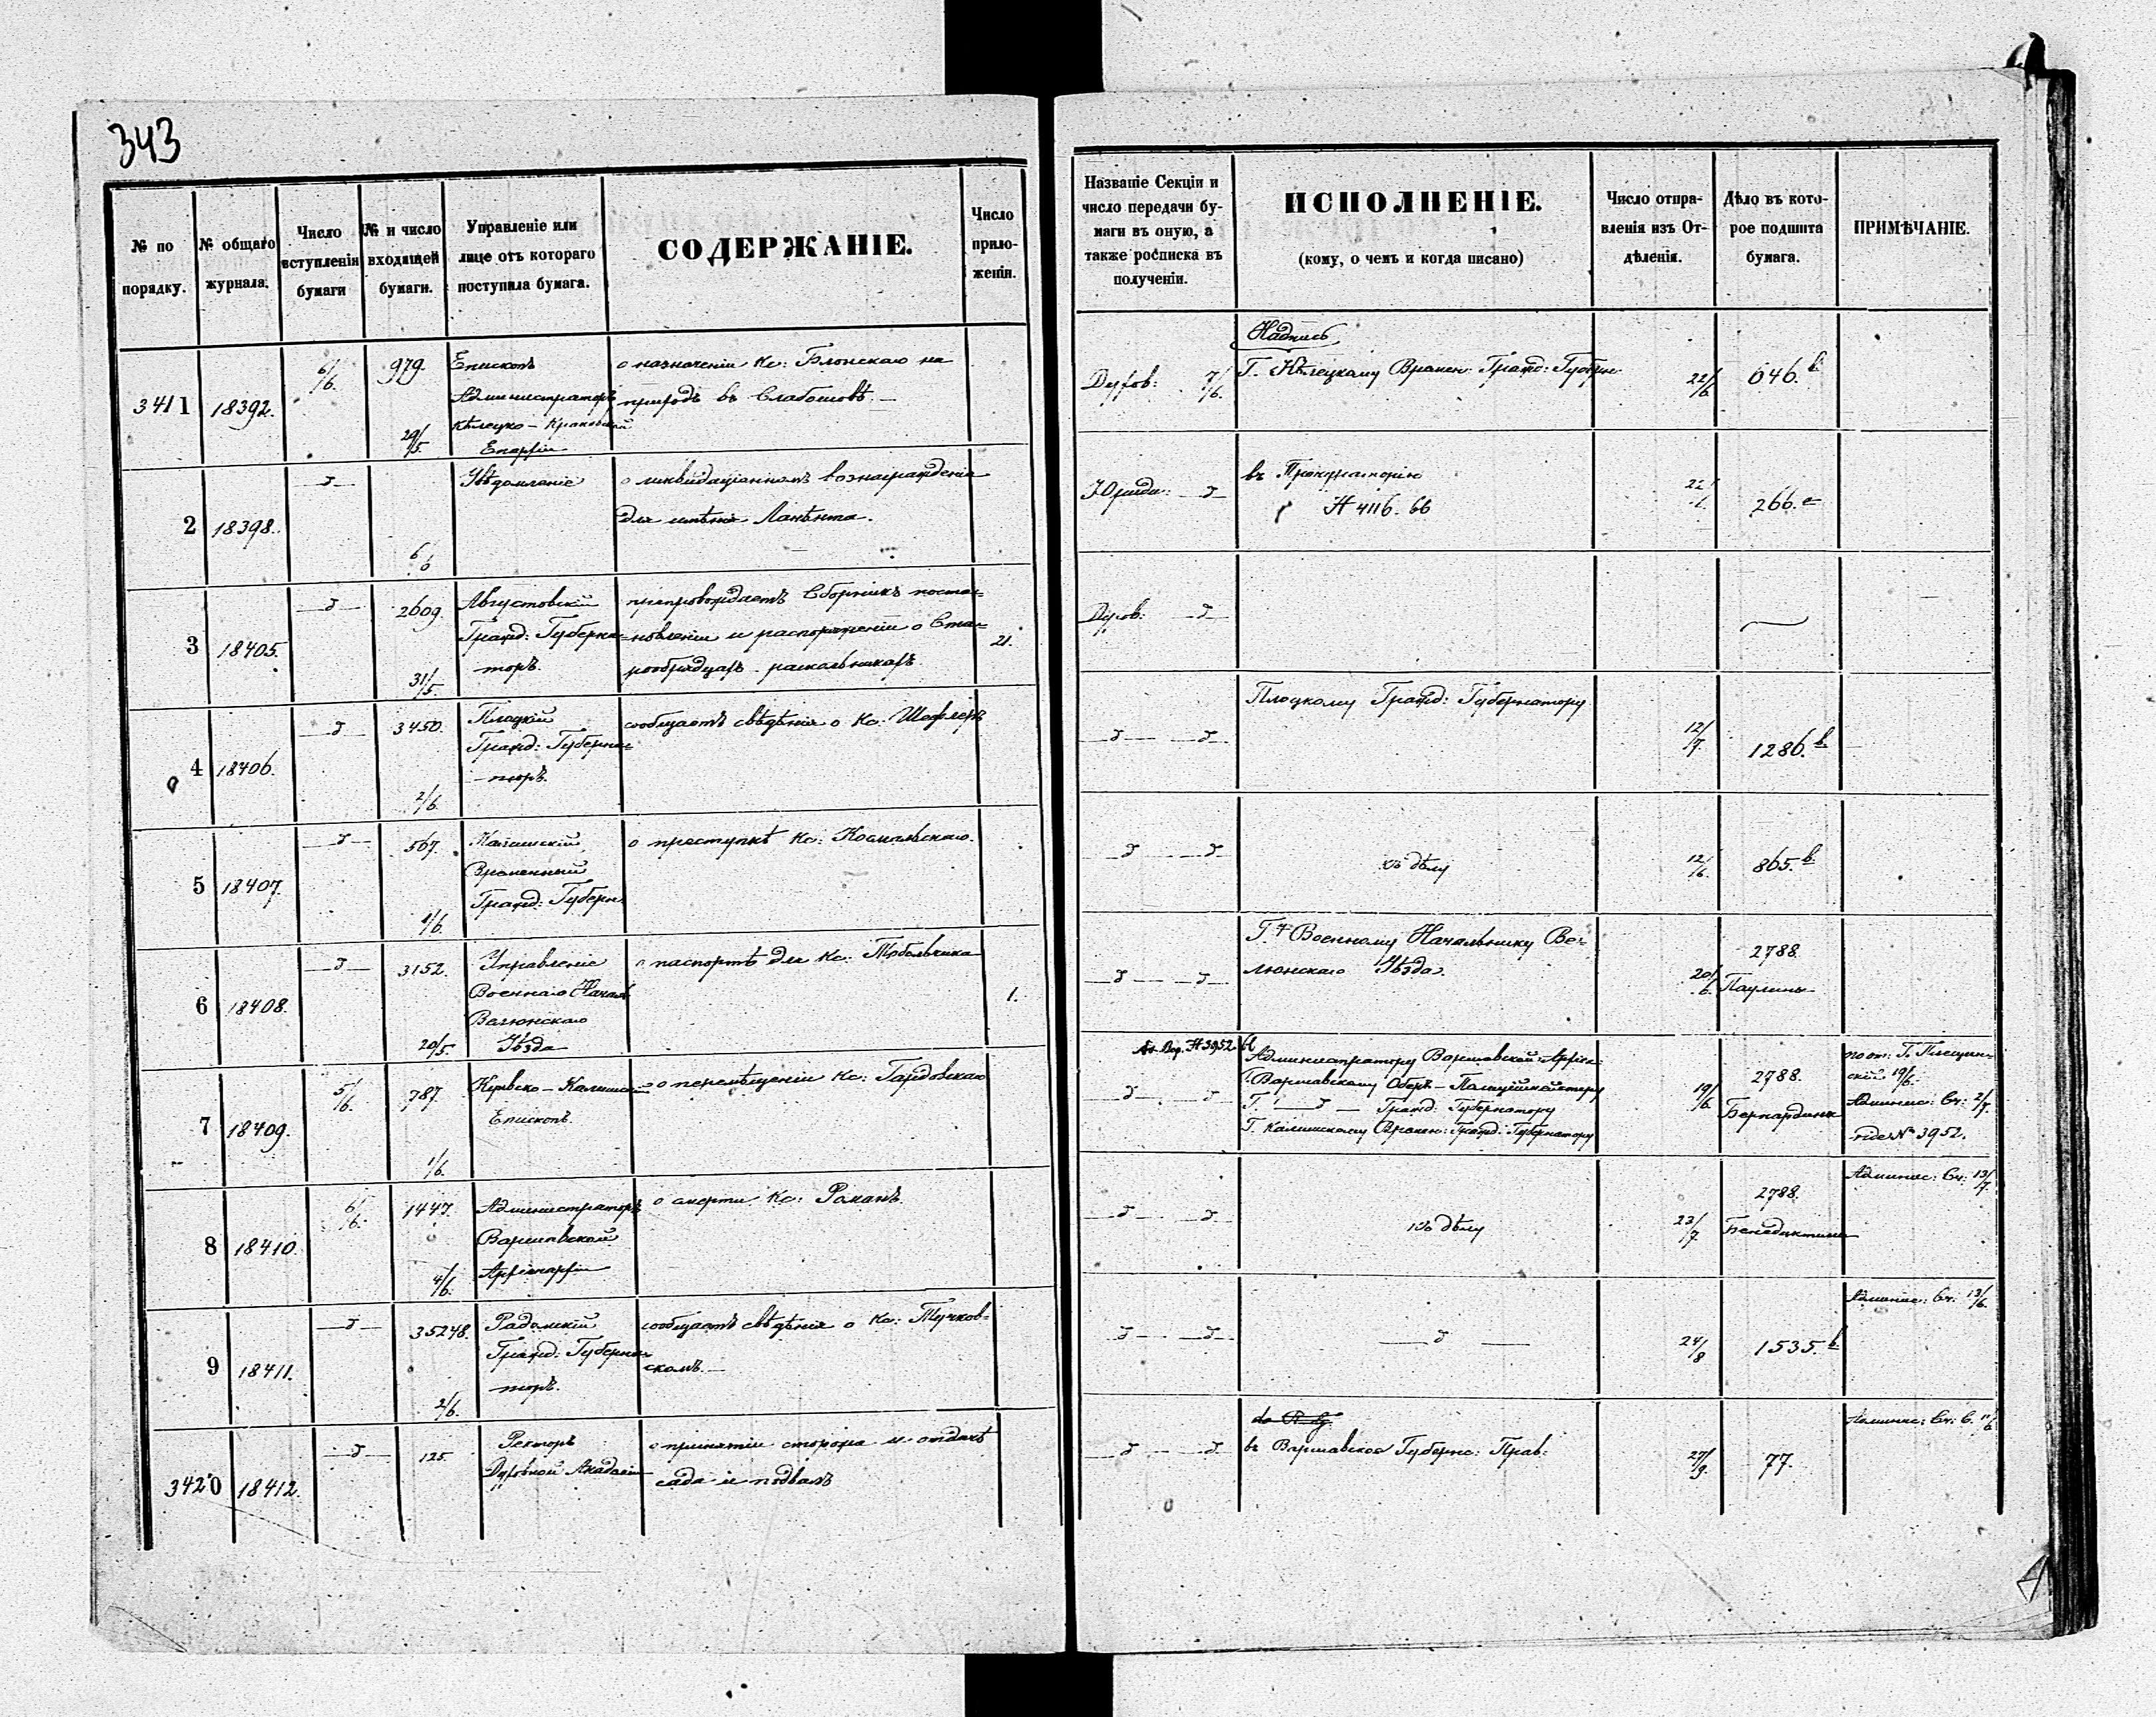 343
№ по порядку.
№ общаго журнала.
Число вступленія бумаги
№ и число входящей бумаги.
Управленіе или лице отъ котораго поступила бумага.
СОДЕРЖАНІЕ.
Число прило-женія.
Названіе Секціи и число передачи бу-маги въ оную, а также росписка въ полученіи.
ИСПОЛНЕНІЕ.
(кому, о чемъ и когда писано)
Число отпра-вленія изъ От-дѣленія.
Дѣло въ кото-рое подшита бумага.
ПРИМѢЧАНІЕ.
3411
18392.
6/6.
979.
29/5.
Епископъ
Администраторъ
Кѣлецко-Краковской
Епархіи
о назначеніи Кс: Блонскаго на
приходъ въ Слабошовѣ.
Духов: 7/6.
Надпись
Г. Кѣлецкому Времен: Гражд: Губерн:
22/6
646. в
2
18398.
д
6/6
Увѣдомленіе
о ликвидаціонномъ вознагражденіи
для имѣнія
Юриди: д
въ Прокураторію
№ 4116. 66
22/6.
266. е
3
18405.
д
2609.
31/5.
Августовскій
Гражд: Губерна-
торъ.
препровождаетъ Сборникъ поста-
новленіи и распоряженіи о Ста-
рообрядцахъ раскольникахъ
21.
Духов: д
4
18406.
д
3450.
2/6.
Плоцкій
Гражд: Губерна-
торъ.
сообщаетъ свѣдѣнія о Кс:
д д
Плоцкому Гражд: Губернатору
12/7.
1286. в.
5
18407.
д
567.
1/6.
Калишскій
Временный
Гражд: Губерн.
о преступкѣ Кс: Космальскаго.
д д
къ дѣлу
12/6.
865. в.
6
18408.
д
3152.
20/5.
Управленіе
Военнаго Начал:
Велюнскаго
Уѣзда
о паспортѣ для Кс: Тобольчика
1.
д д
Г. Военному Начальнику Ве-
люнскаго Уѣзда.
20/6.
2788.
Паулины
7
18409.
5/6.
787.
1/6.
Куявско-Калишскій
Епископъ.
о перемѣщеніи Кс: Гардовскаго
д д
№ 3952
Администратору Варшавской Архіеп:
Г. Варшавскому Оберъ-Полиціймейстеру
Г. д Гражд: Губернатору
Г. Калишскому Времен: Гражд: Губернатору
19/6.
2788.
Бернардины
по от: Г. Плещин-
скій 19/6.
Админис: Сч: 2/7.
vide № 3952.
8
18410.
6/6.
1447.
4/6.
Администраторъ
Варшавской
Архіепархіи
о смерти Кс: Романъ
д д
къ дѣлу
23/7.
2788.
Бенедиктины
Админис: Сч: 13/7.
9
18411.
д
35248.
2/6.
Радомскій
Гражд: Губерна-
торъ.
сообщаетъ свѣдѣнія о Кс: Тучков-
скомъ.
д д
д
24/8
1535. в
Админис: Сч: 13/6.
3420
18412.
д
125.
Ректоръ
Духовной Академіи
о принятіи сторожа и отдачѣ
сада и подвалъ
д д
въ Варшавское Губернс: Прав:
27/9.
77.
Админис: Сч: 6. 11/6